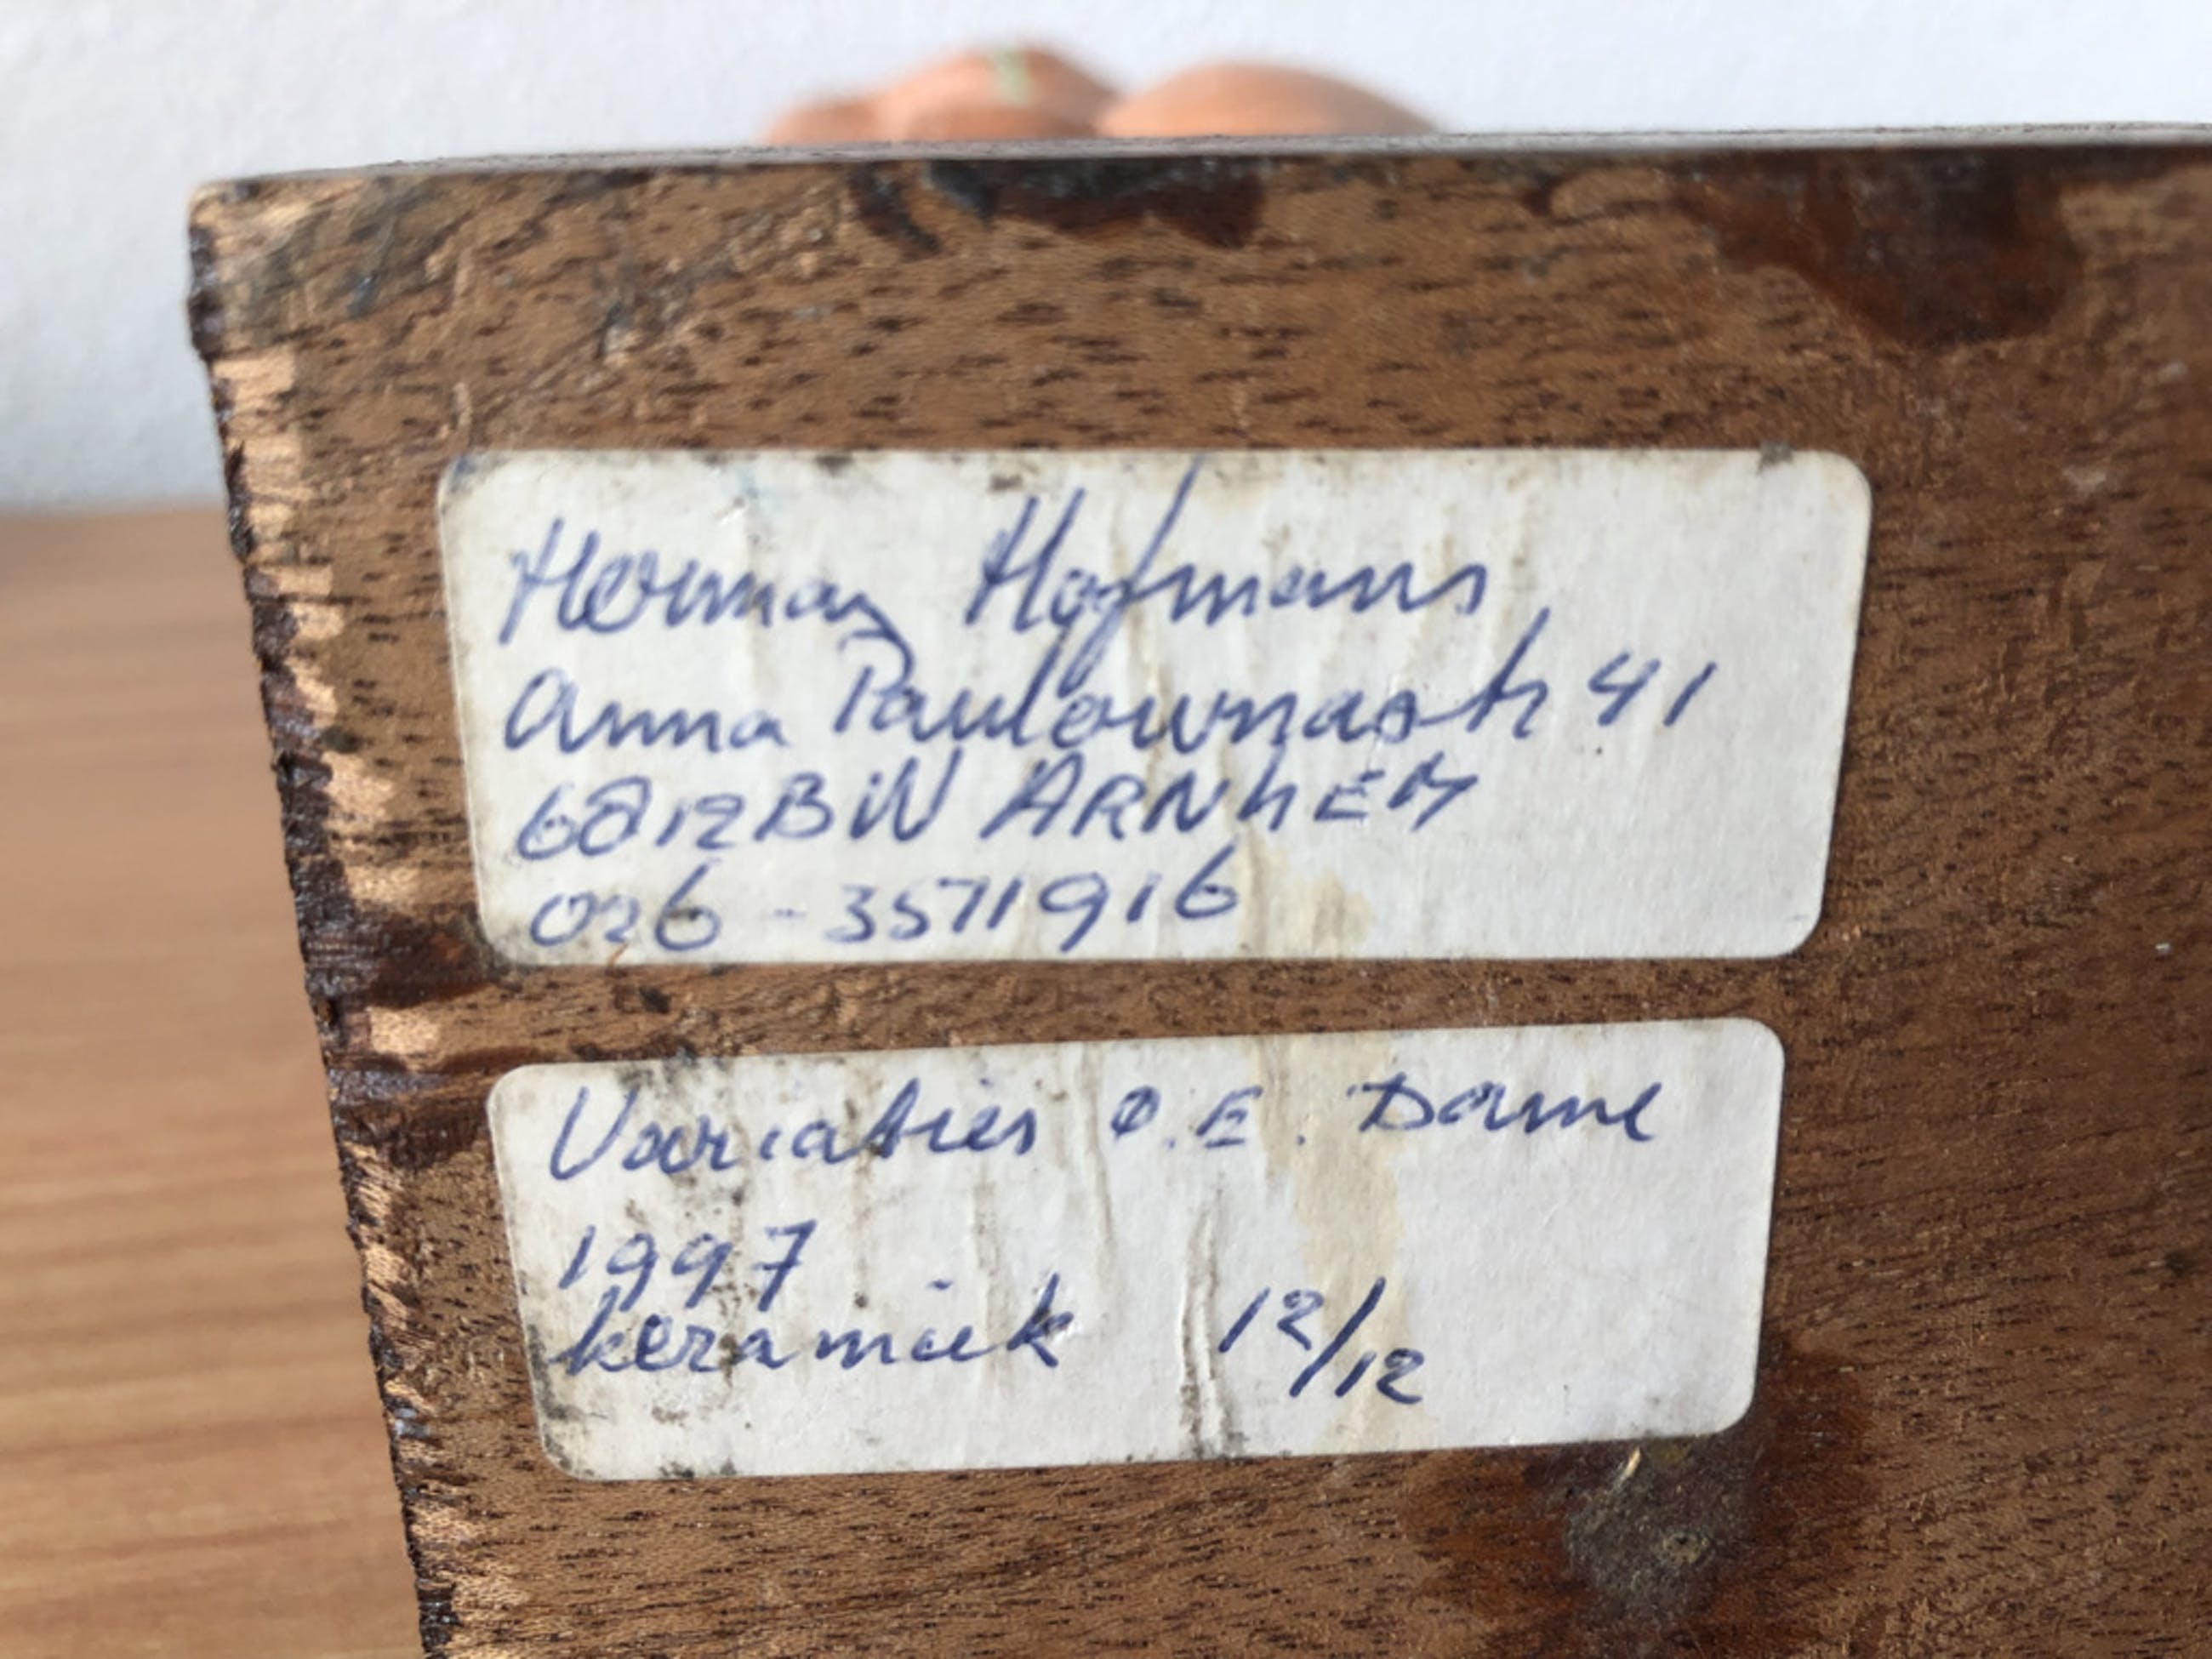 Herman Hofmans
Anna Paulownastr 41
6812BW ARNhEM
026-3571916
Variaties O.E. Dame
1997
keramiek 12/12